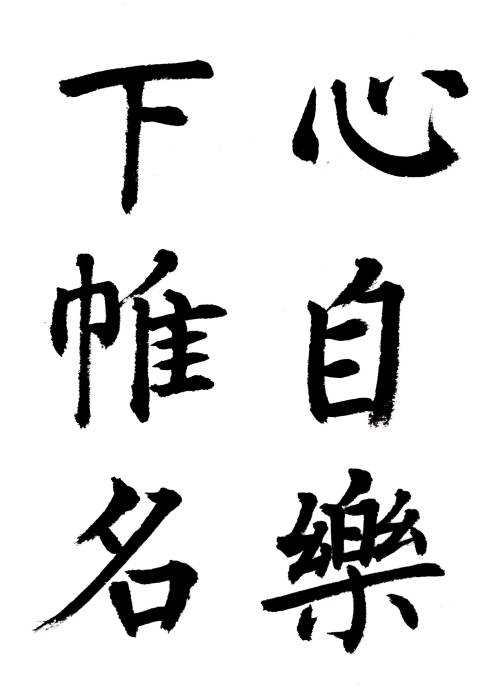 心自樂
下帷名